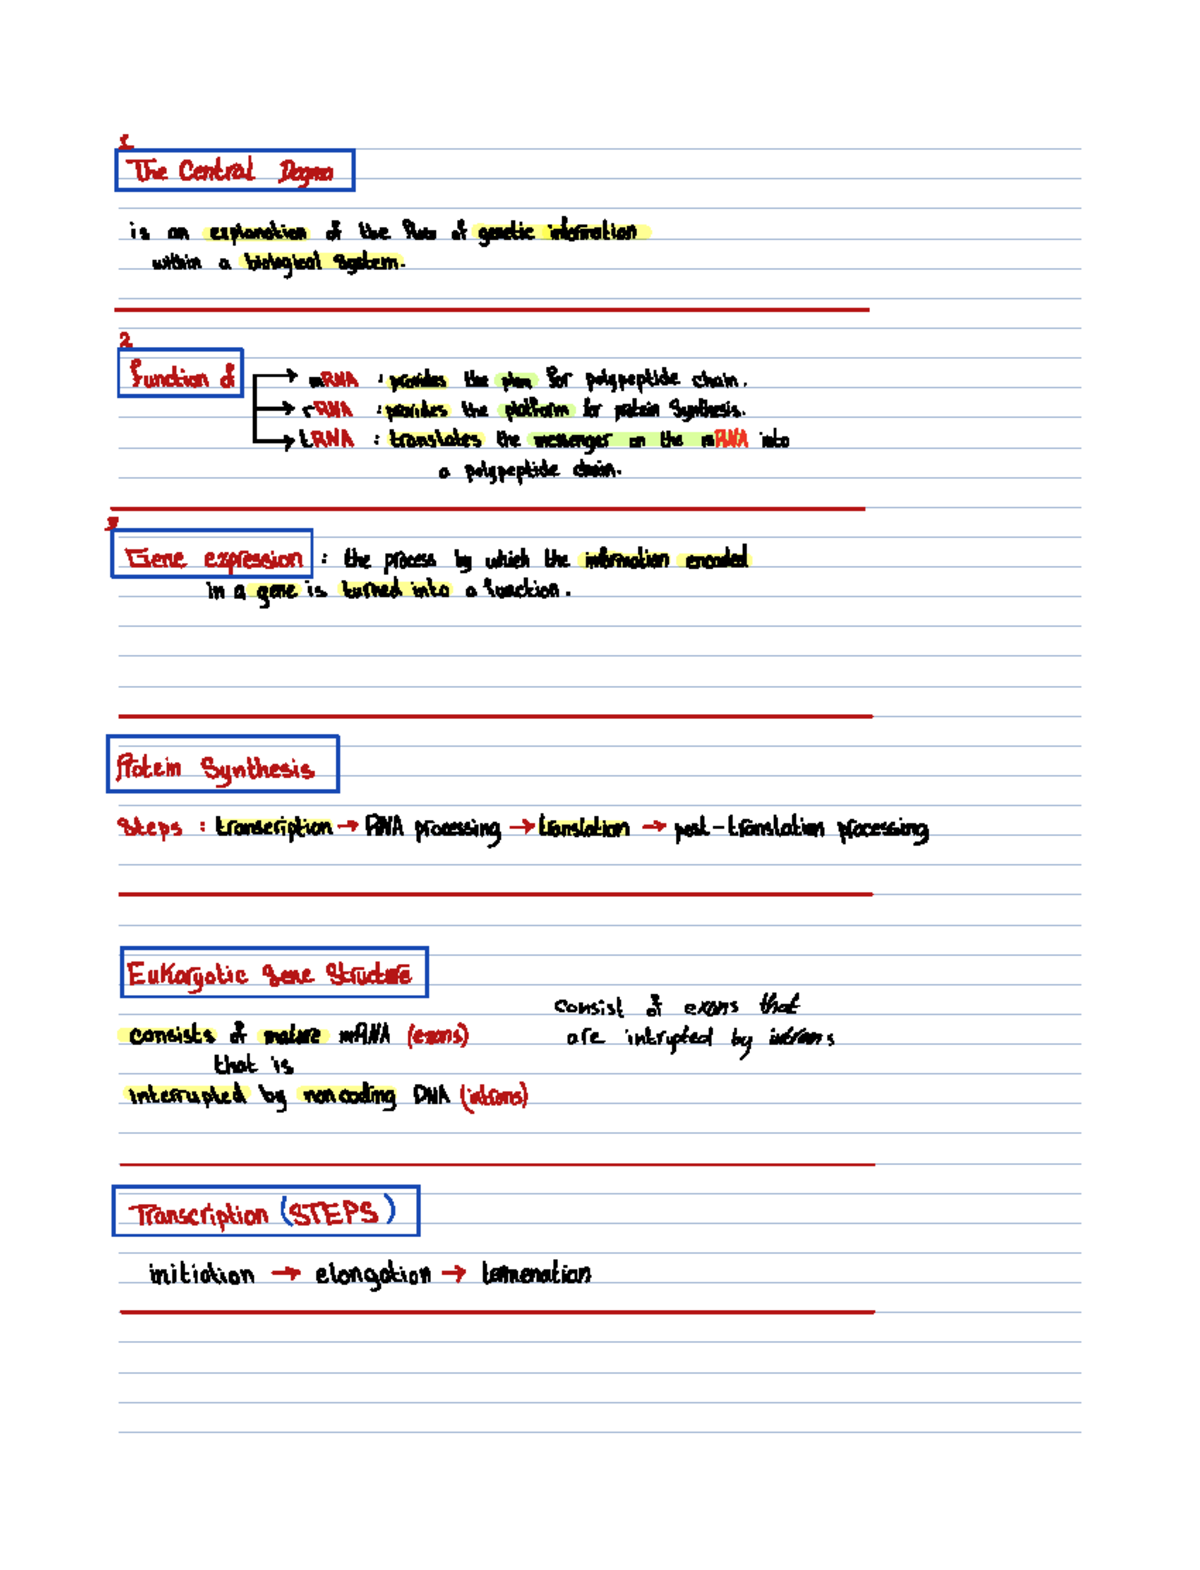 1
The Central Dogma
is an explanation of the flow of genetic information
within a biological system.
2
function of
mRNA : provides the plan for polypeptide chain.
rRNA : provides the platform for protein Synthesis.
tRNA : translates the messenger on the mRNA into
a polypeptide chain.
3
Gene expression : the process by which the information encoded
in a gene is turned into a function.
Protein Synthesis
Steps : transcription → RNA processing → translation → post-translation processing
Eukaryotic gene Structure
consist of exons that
are intrupted by introns
consists of mature mRNA (exons)
that is
interrupted by noncoding DNA (introns)
Transcription (STEPS)
initiation → elongation → termenation